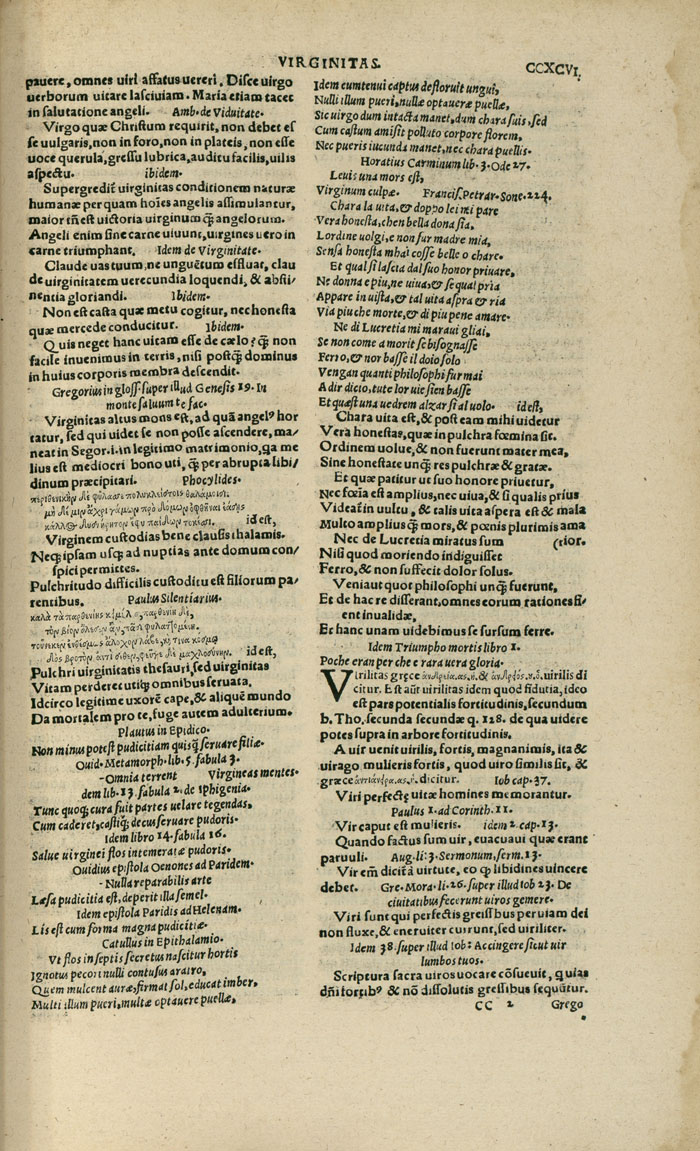 VIRGINITAS.
CCXCVI.
pauere, omnes uiri affatus uereri. Disce uirgo
uerborum uitare lasciuiam. Maria etiam tacet
in salutatione angeli. Amb. de Viduitate.
Virgo quæ Christum requirit, non debet es
se uulgaris, non in foro, non in plateis, non esse
uoce querula, gressu lubrica, auditu facilis, uilis
aspectu. ibidem.
Supergredit́ uirginitas conditionem naturæ
humanæ per quam hoīes angelis assimulantur,
maior tñ est uictoria uirginum q̃ angelorum.
Angeli enim sine carne uiuunt, uirgines uero in
carne triumphant. Idem de Virginitate.
Claude uas tuum, ne unguẽtum effluat, clau
de uirginitatem uerecundia loquendi, & absti⸗
nentia gloriandi. Ibidem.
Non est casta quæ metu cogitur, nec honesta
quæ mercede conducitur. Ibidem.
Quis neget hanc uitam esse de cælo? q̃ non
facile inuenimus in terris, nisi postq̃ dominus
in huius corporis membra descendit.
Gregorius in gloss. super illud Genesis 19. In
monte saluum te fac.
Virginitas altus mons est, ad quã angelꝰ hor
tatur, sed qui uidet se non posse ascendere, ma⸗
neat in Segor. i. in legitimo matrimonio, qa me
lius est mediocri bono uti, q̃ per abrupta libi⸗
dinum præcipitari. Phocylides.
id est,
Virginem custodias bene clausis thalamis.
Neq; ipsam usq; ad nuptias ante domum con⸗
spici permittes.
Pulchritudo difficilis custoditu est filiorum pa⸗
rentibus. Paulus Silentiarius.
id est,
Pulchri uirginitatis thesauri, sed uirginitas
Vitam perderet utiq; omnibus seruata.
Idcirco legitime uxorẽ cape, & aliquẽ mundo
Da mortalem pro te, fuge autem adulterium.
Plautus in Epidico.
Non minus potest pudicitiam quisq̃ seruare filiæ.
Ouid. Metamorph. lib. 5. fabula 3.
-Omnia terrent Virgineas mentes.
dem lib. 13. fabula 2. de Iphigenia.
Tunc quoq; cura fuit partes uelare tegendas,
Cum caderet, castiq; decus seruare pudoris.
Idem libro 14. fabula 16.
Salue uirginei flos intemeratæ pudoris.
Ouidius epistola Oenones ad Paridem.
-Nulla reparabilis arte
Læsa pudicitia est, deperit illa semel.
Idem epistola Paridis ad Helenam.
Lis est cum forma magna pudicitiæ.
Catullus in Epithalamio.
Vt flos in septis secretus nascitur hortis
Ignotus pecori nulli contusus aratro,
Quem mulcent auræ, firmat sol, educat imber,
Multi illum pueri, multæ optauere puellæ,
Idem cum tenui captus defloruit ungui,
Nulli illum pueri, nullæ optauere puellæ,
Sic uirgo dum intacta manet, dum chara suis, sed
Cum castum amisit polluto corpore florem,
Nec pueris iucunda manet, nec chara puellis.
Horatius Carminum lib. 3. Ode 27.
Leuis una mors est,
Virginum culpæ. Francis. Petrar. Sone. 224.
Chara la uita, & doppo lei mi pare
Vera honesta, chen bella dona sia,
Lordine uolgi, e non fur madre mia,
Sensa honesta mhai cosse belle o chare.
Et qual si lascia dal suo honor priuare,
Ne donna e piu, ne uiua, & se qual pria
Appare in uista, & tal uita aspra & ria
Via piu che morte, & di piu pene amare.
Ne di Lucretia mi maraui gliai,
Se non come a morit se bisognasse
Ferro, & nor basse il doio solo
Vengan quanti philosophi fur mai
A dir dicto, tute lor uie sien basse
Et quæst una uedrem alzar si al uolo. id est,
Chara uita est, & post eam mihi uidetur
Vera honestas, quæ in pulchra fœmina sit.
Ordinem uolue, & non fuerunt mater mea,
Sine honestate unq̃ res pulchræ & gratæ.
Et quæ patitur ut suo honore priuetur,
Nec fœīa est amplius, nec uiua, & si qualis prius
Videat́ in uultu, & talis uita aspera est & mala
Multo amplius q̃ mors, & pœnis plurimis ama
Nec de Lucretia miratus sum (rior.
Nisi quod moriendo indiguisset
Ferro, & non suffecit dolor solus.
Veniant quot philosophi unq̃ fuerunt,
Et de hac re disserant, omnes eorum rationes fi⸗
ent inualidæ,
Et hanc unam uidebimus se sursum ferre.
Idem Triumpho mortis libro 1.
Poche eran per che e rara uera gloria.
Virilitas gręce ἀνδρεία.ας.ἡ. & ἀνδρός.ὁ. uirilis di
citur. Est aūt uirilitas idem quod fidutia, ideo
est pars potentialis fortitudinis, secundum
b. Tho. secunda secundæ q. 128. de qua uidere
potes supra in arbore fortitudinis.
A uir uenit uirilis, fortis, magnanimis, ita &
uirago mulieris fortis, quod uiro similis sit, &
græce ἀντιάνδρα.ας.ἡ. dicitur. Iob cap. 37.
Viri perfectę uitæ homines memorantur.
Paulus 1. ad Corinth. 11.
Vir caput est mulieris. idem 2. cap. 13.
Quando factus sum uir, euacuaui quæ erant
paruuli. Aug. li. 3. Sermonum, serm. 13.
Vir em̃ dicit́ a uirtute, eo q̃ libidines uincere
debet. Gre. Mora. li. 26. super illud Iob 23. De
ciuitatibus fecerunt uiros gemere.
Viri sunt qui perfectis gressibus per uiam dei
non fluxe, & eneruiter currunt, sed uiriliter.
Idem 38. super illud Iob: Accingere sicut uir
lumbos tuos.
Scriptura sacra uiros uocare cõsueuit, q uias
dñi fortibꝰ & nõ dissolutis gressibus sequũtur.
CC 2 Grego